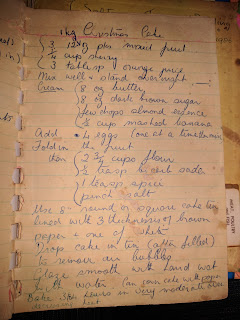 1kg Christmas Cake
plus mixed fruit
3/4 cup sherry
3 tablesp orange juice
Mix well & stand overnight
Cream 8 oz butter
8 oz dark brown sugar
few drops almond essence
1/2 cup mashed banana
Add • 4 eggs (one at a time)
Fold in the fruit
then 2 3/4 cups flour
1/2 teasp bicarb soda
1 teasp spice
pinch salt
Use 8" round or square cake tin
lined with 3 thicknesses of brown
paper & one of white
Drop cake in tin (after filled)
to remove air bubbles
Glaze smooth with hand wet
with water (can cover with paper
Bake 3 hours in very moderate oven